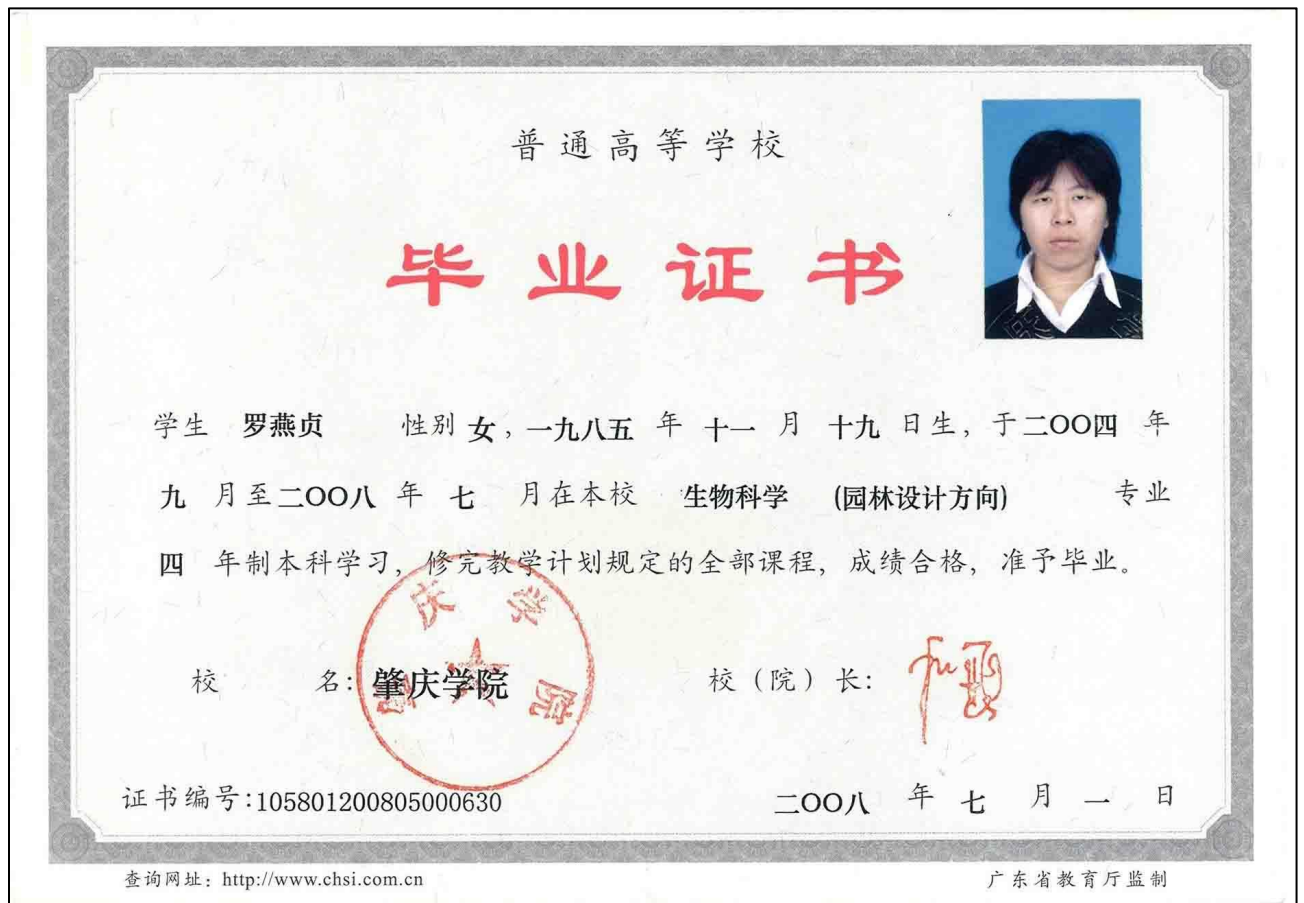 普通高等学校
毕业证书
学生 罗燕贞 性别 女，一九八五 年 十一 月 十九 日生，于二〇〇四 年
九 月至二〇〇八 年 七 月在本校 生物科学 (园林设计方向) 专业
四 年制本科学习，修完教学计划规定的全部课程，成绩合格，准予毕业。
肇庆学院
校 名：肇庆学院 校（院）长：
证书编号:105801200805000630 二〇〇八 年 七 月 一 日
查询网址：http://www.chsi.com.cn 广东省教育厅监制